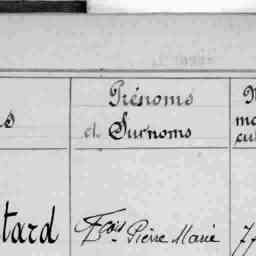 Prénoms
et Surnoms
tard Fois Pierre Marie